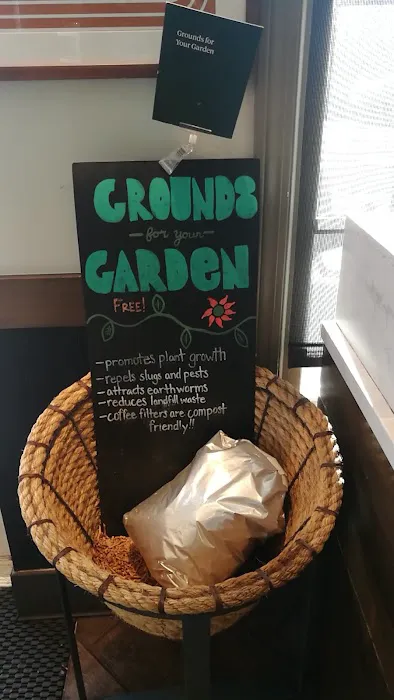 Grounds for
Your Garden
GROUNDS
-for your-
GARDEN
FREE!
-promotes plant growth
-repels slugs and pests
-attracts earthworms
-reduces landfill waste
-coffee filters are compost
friendly!!